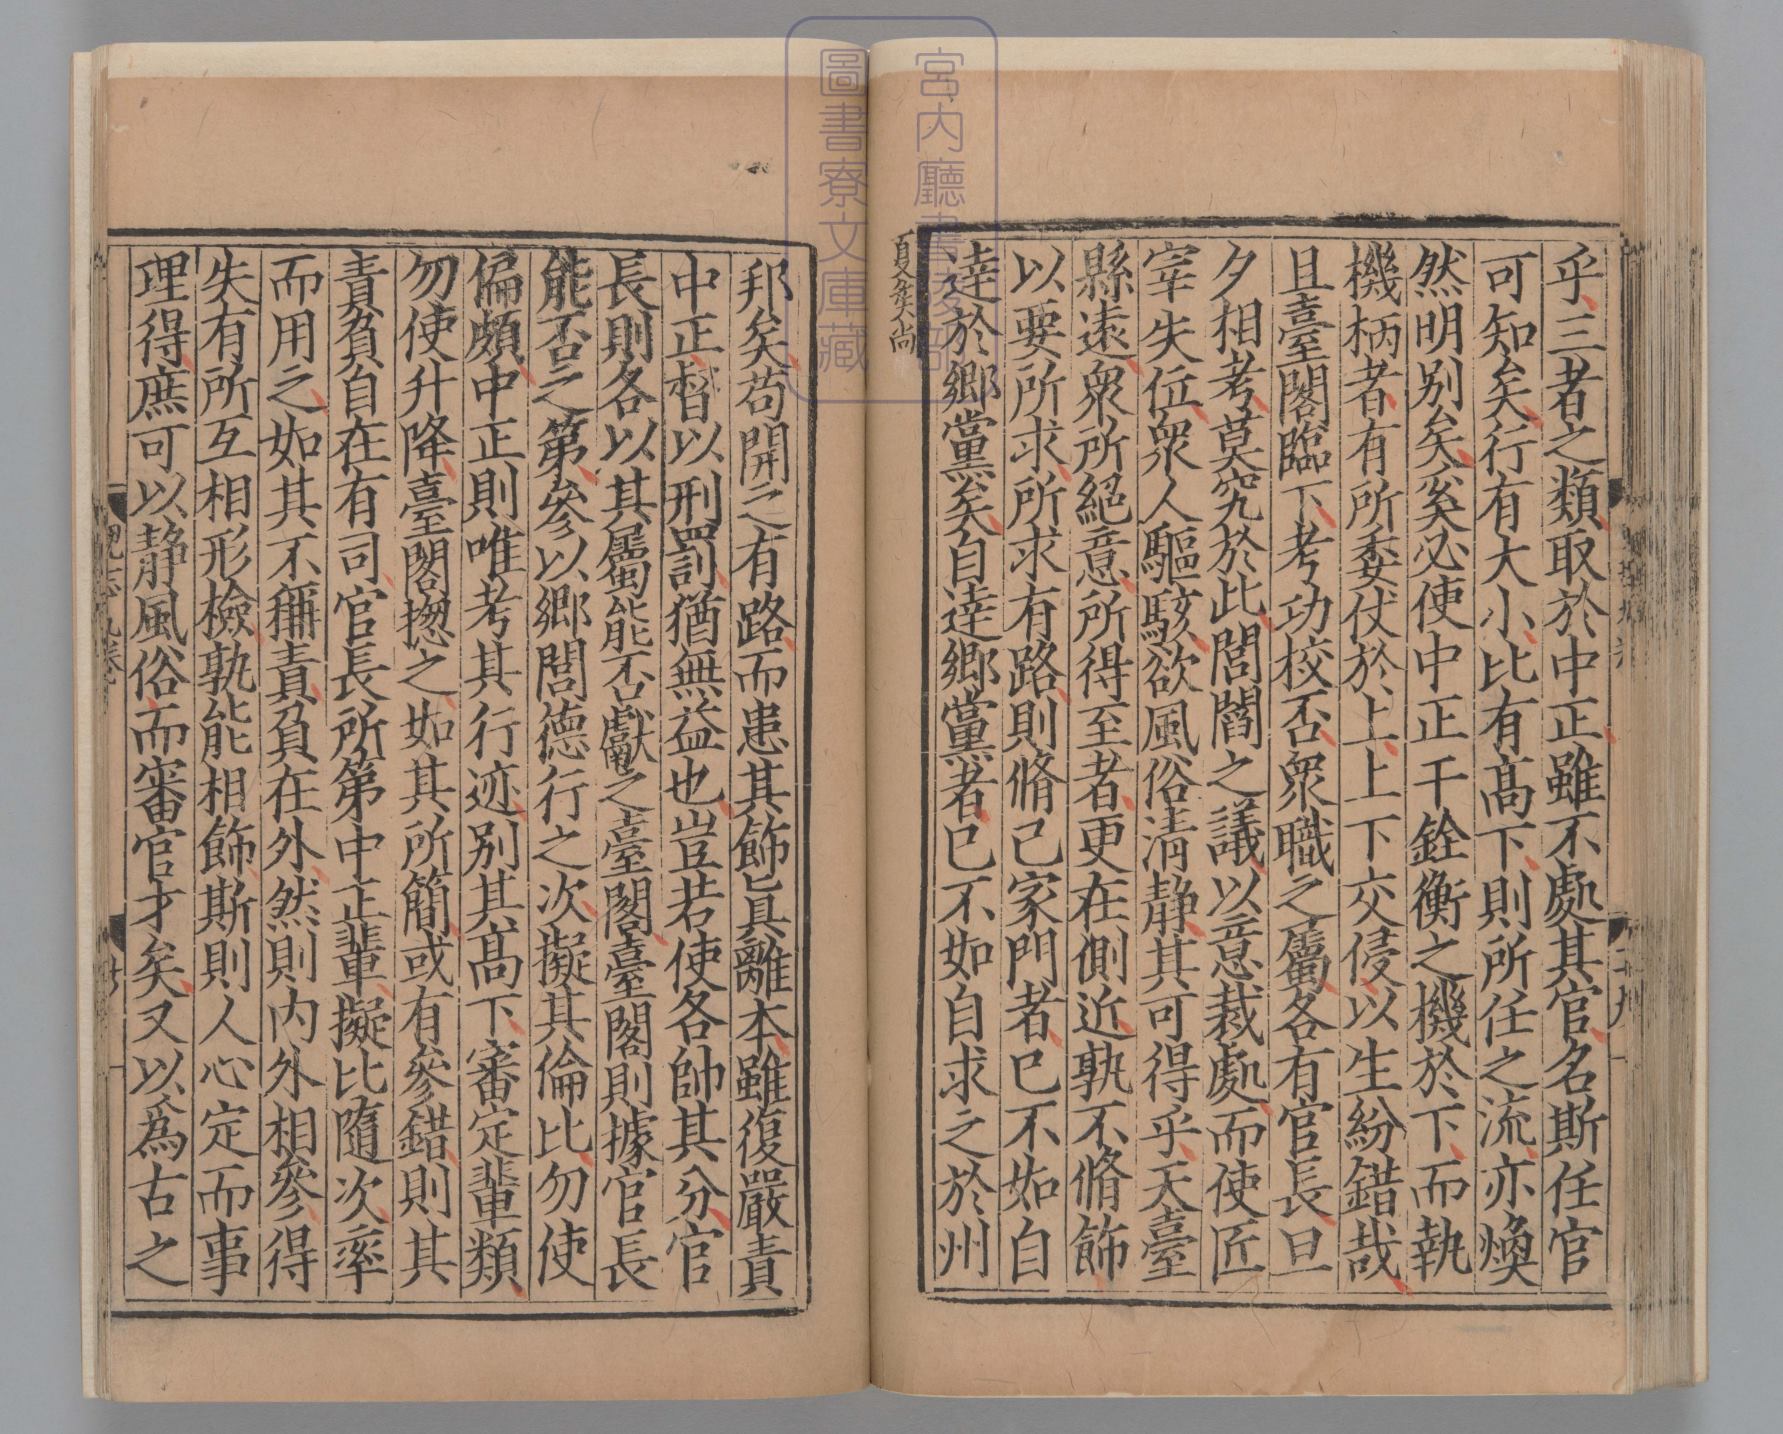 乎三者之類取於中正雖不處其官名斯任官
可知矣行有大小比有髙下則所任之流亦煥
然明别矣奚必使中正干銓衡之機於下而執
機柄者有所委仗於上上下交侵以生紛錯哉
且臺閣臨下考功校否衆職之屬各有官長旦
夕相考莫究於此閭閻之議以意裁處而使匠
宰失位衆人驅駭欲風俗清静其可得乎天臺
縣遠衆所絕意所得至者更在側近孰不脩飾
以要所求所求有路則脩己家門者已不如自
逹於鄉黨矣自逹鄉黨者已不如自求之於州
夏侯尚
邦矣苟開之有路而患其飾眞離本雖復嚴責
中正督以刑罰猶無益也豈若使各帥其分官
長則各以其屬能否獻之臺閣臺閣則據官長
能否之第參以鄉閭德行之次擬其倫比勿使
偏頗中正則唯考其行迹别其髙下審定輩類
勿使升降臺閣揔之如其所簡或有參錯則其
責負自在有司官長所第中正輩擬比隨次率
而用之如其不稱責負在外然則内外相參得
失有所互相形檢孰能相飾斯則人心定而事
理得庶可以静風俗而審官才矣又以爲古之
宮内廳書陵部
圖書寮文庫藏